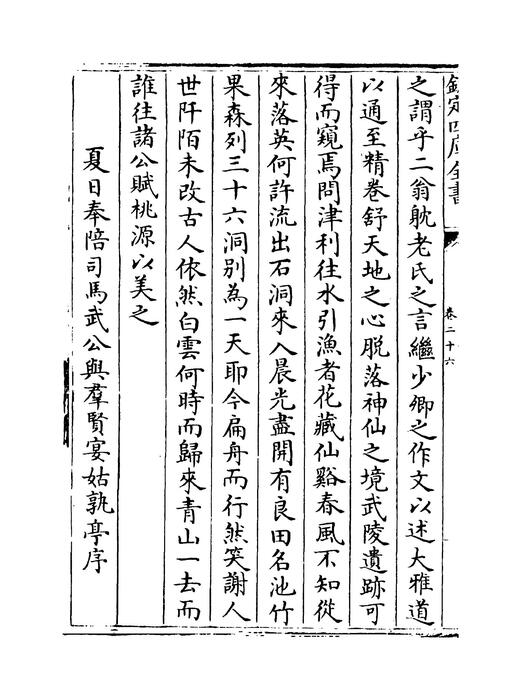 欽定四庫全書
卷二十六
之謂乎二翁躭老氏之言繼少卿之作文以述大雅道
以通至精卷舒天地之心脫落神仙之境武陵遺跡可
得而窺焉問津利往水引漁者花藏仙谿春風不知從
來落英何許流出石洞來入晨光盡開有良田名池竹
果森列三十六洞别為一天耶今扁舟而行然笑謝人
世阡陌未改古人依然白雲何時而歸來青山一去而
誰往諸公賦桃源以美之
夏日奉陪司馬武公與羣賢宴姑孰亭序